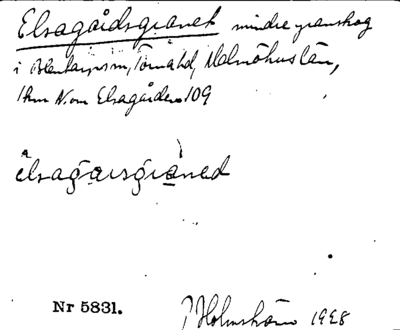 Elsagårdsgranet mindre granskog
i Blentarps sn, Torna hd, Malmöhus län,
1 km N. om Elsagården 109
elsagarsgraned
Nr 5831.
P Holmström 1928